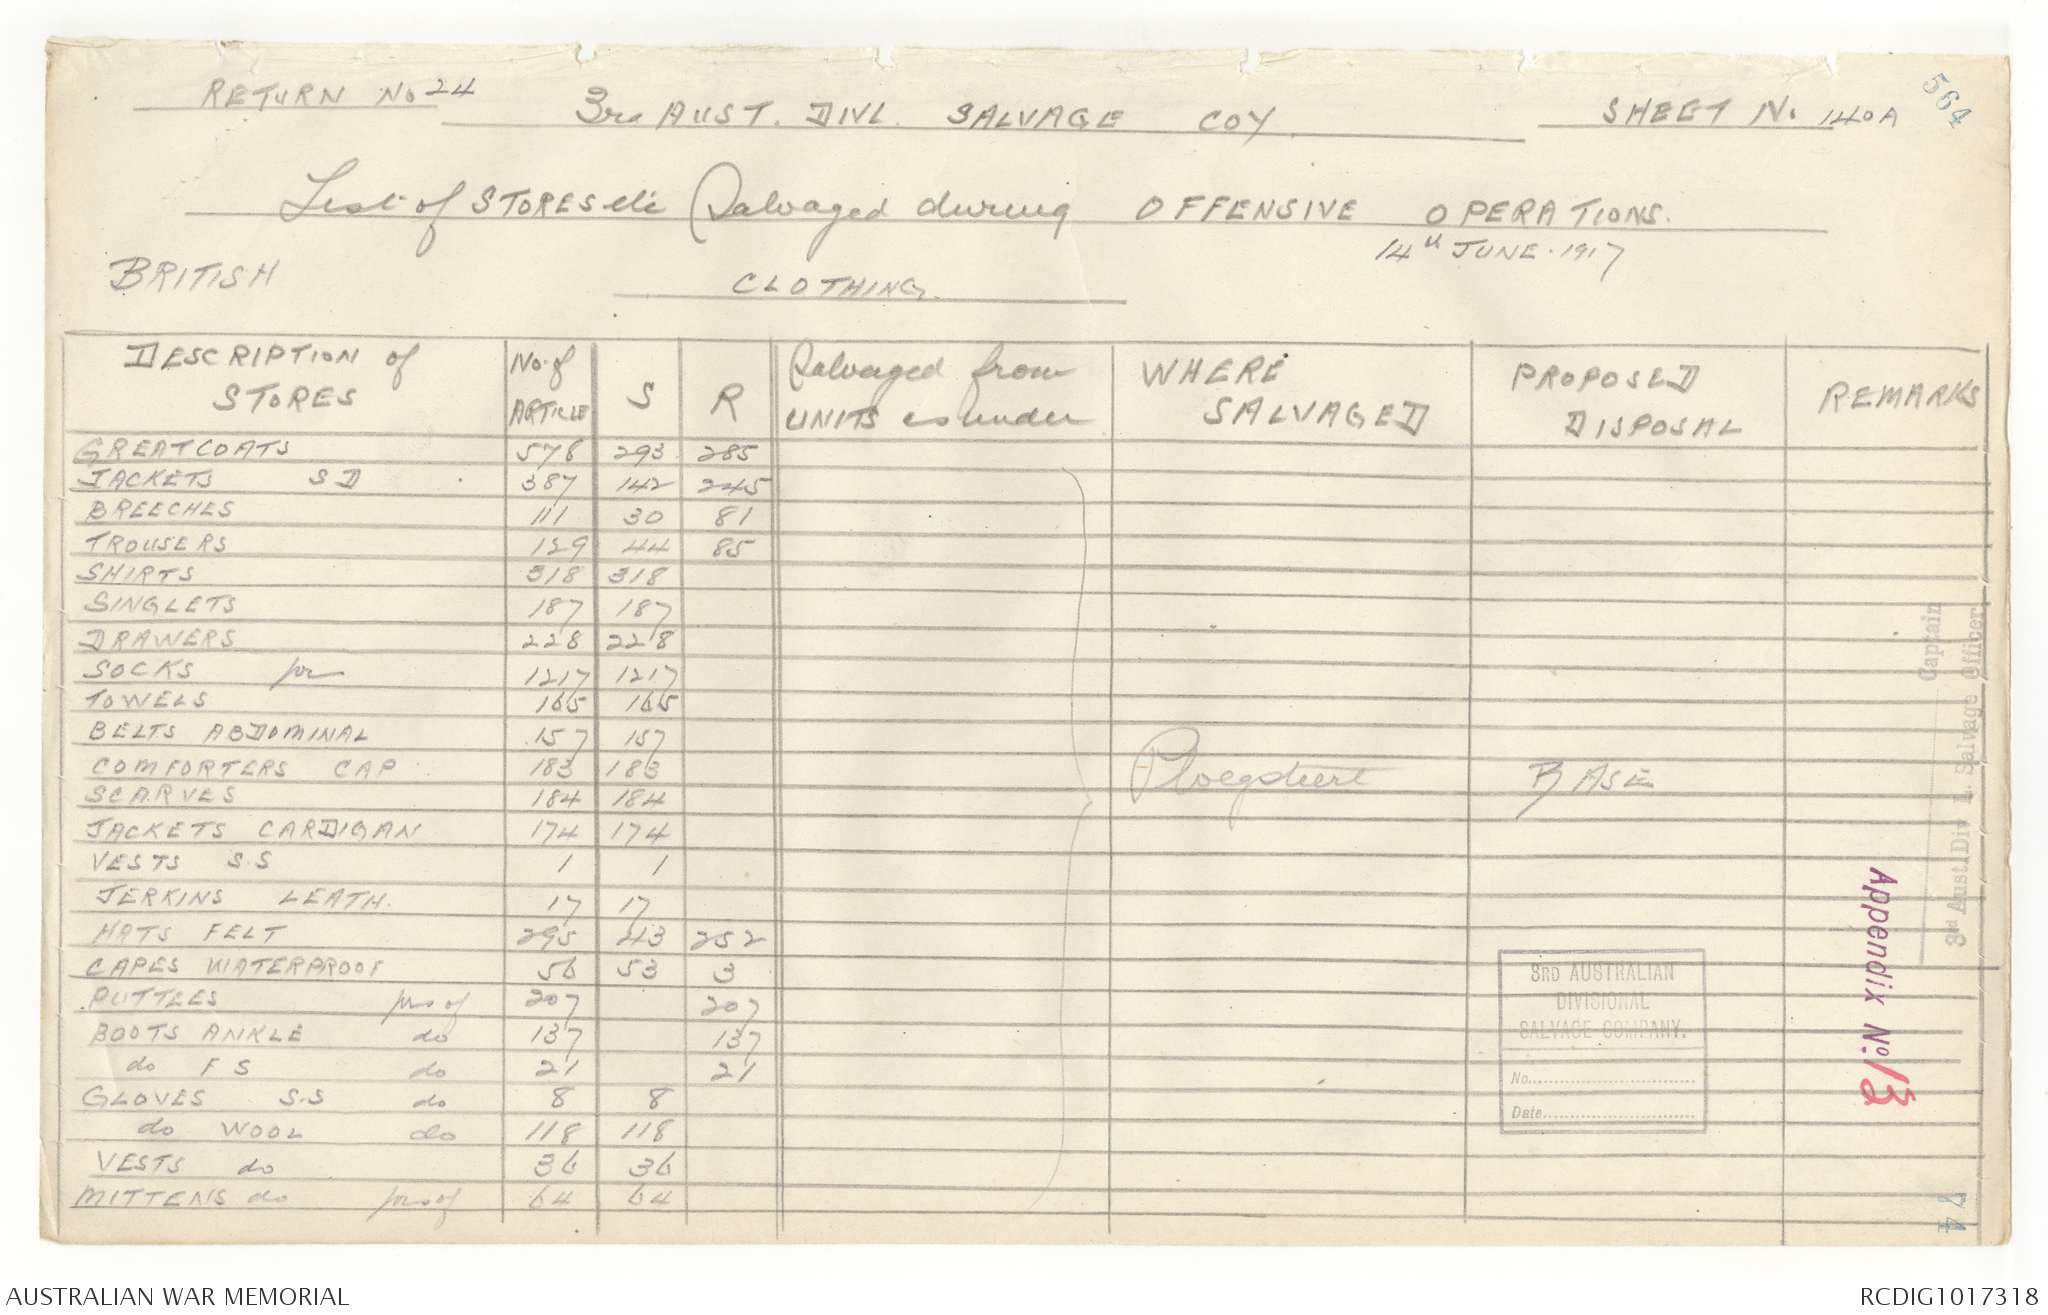 RETURN No 24
3rd AUST. DIVL. SALVAGE COY.
SHEET No. 140A
564
List of STORES etc Salvaged during OFFENSIVE OPERATIONS.
14th JUNE. 1917
BRITISH
CLOTHING.
DESCRIPTION of STORES No. of ARTICLE S R Salvaged from UNITS as under WHERE SALVAGED PROPOSED DISPOSAL REMARKS
GREATCOATS 578 293 285
JACKETS S D 387 142 245
BREECHES 111 30 81
TROUSERS 129 44 85
SHIRTS 318 318
SINGLETS 187 187
DRAWERS 228 228
SOCKS pr 1217 1217
TOWELS 165 165
BELTS ABDOMINAL 157 157
COMFORTERS CAP 183 183 Ploegsteert BASE
SCARVES 184 184
JACKETS CARDIGAN 174 174
VESTS S.S 1 1
JERKINS LEATH. 17 17
HATS FELT 295 43 252
CAPES WATERPROOF 56 53 3
PUTTEES prs of 207 207
BOOTS ANKLE do 137 137
do F S do 21 21
GLOVES S.S do 8 8
do WOOL do 118 118
VESTS do 36 36
MITTENS do prs of 64 64
Captain
3rd Aust. Div. L. Salvage Officer
Appendix No. 13
3RD AUSTRALIAN
DIVISIONAL
SALVAGE COMPANY.
No.
Date
74
AUSTRALIAN WAR MEMORIAL
RCDIG1017318